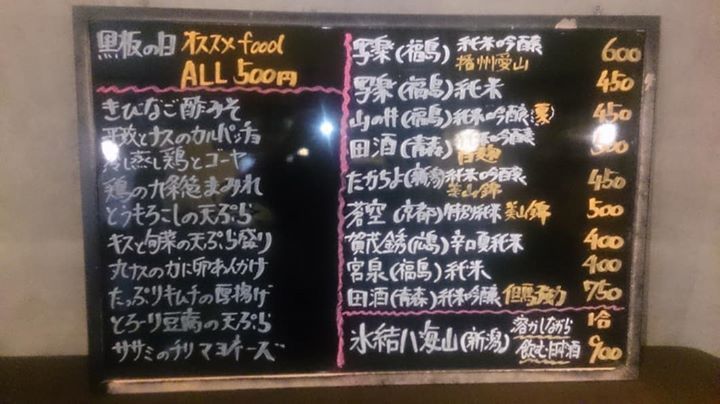 黒板の日 オススメ food
ALL 500円
きびなご酢みそ
とナスのカルパッチョ
蒸し鶏とゴーヤ
鶏の九条葱まみれ
とうもろこしの天ぷら
キスと旬菜の天ぷら盛り
丸ナスのカニ卵あんかけ
たっぷりキムチの厚揚げ
とろーり豆腐の天ぷら
ササミのチリマヨネーズ
写楽(福島)純米吟醸 播州愛山 600
写楽(福島)純米 450
山の井(福島)純米吟醸(夏) 450
田酒(青森)純米吟醸
たかちよ(新潟)純米吟醸 美山錦 450
蒼空(京都)特別純米 美山錦 500
賀茂金秀(広島)辛口夏純米 400
宮泉(福島)純米 400
田酒(青森)純米吟醸 但馬強力 750
氷結八海山(新潟) 溶かしながら飲む日本酒 1合 900